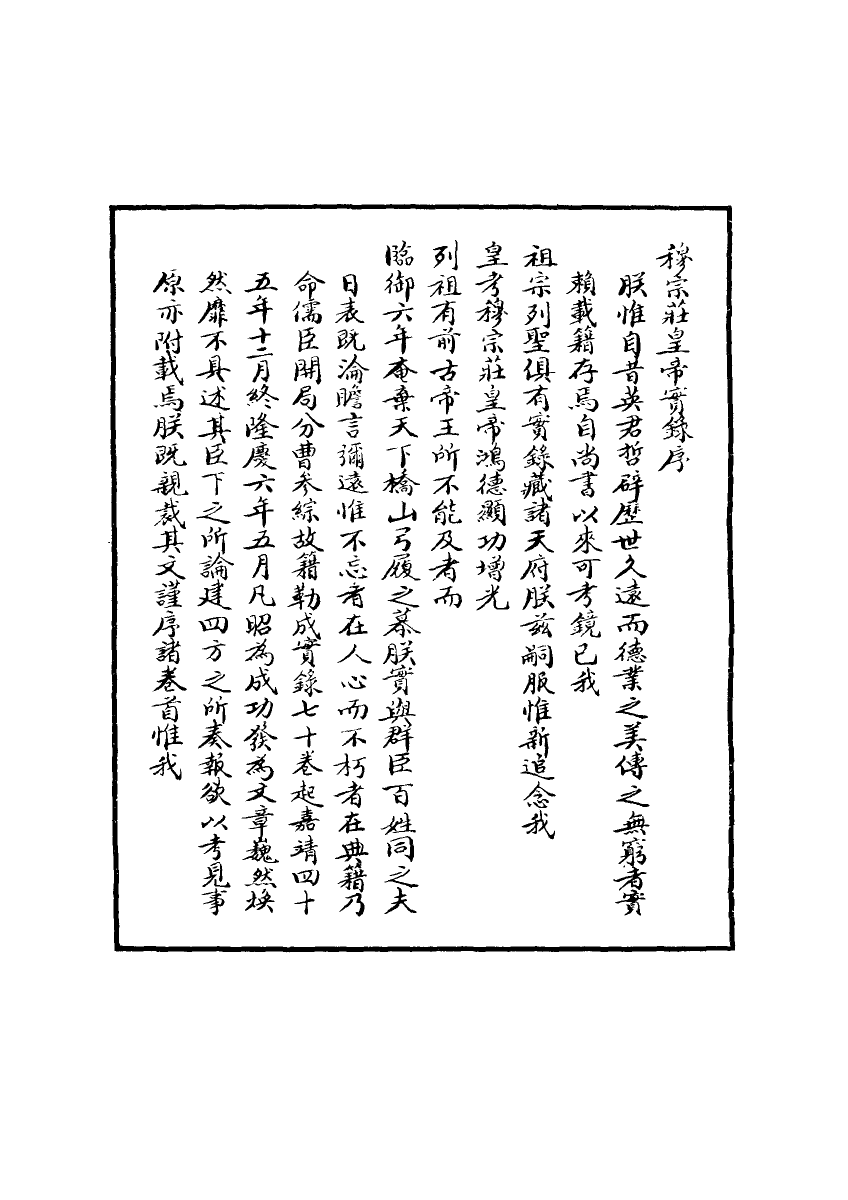 穆宗莊皇帝實錄序
朕惟自昔英君哲辟歷世久遠而德業之美傳之無窮者實
賴載籍存焉自尚書以來可考鏡已我
祖宗列聖俱有實錄藏諸天府朕茲嗣服惟新追念我
皇考穆宗莊皇帝鴻德顯功增光
列祖有前古帝王所不能及者而
臨御六年奄棄天下橋山弓履之慕朕實與群臣百姓同之夫
日表既淪瞻言彌遠惟不忘者在人心而不朽者在典籍乃
命儒臣開局分曹參綜故籍勒成實錄七十卷起嘉靖四十
五年十二月終隆慶六年五月凡昭為成功發為文章巍然煥
然靡不具述其臣下之所論建四方之所奏報欲以考見事
原亦附載焉朕既親裁其文謹序諸卷首惟我